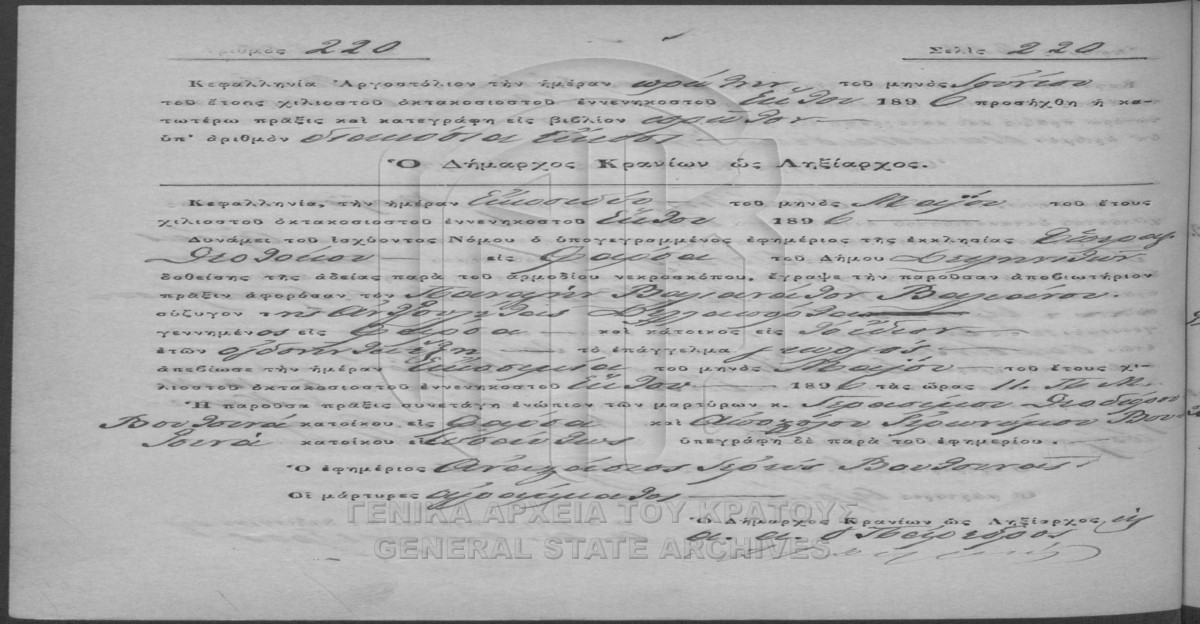 Ἀριθμὸς 220 Σελὶς 220
Κεφαλληνία Ἀργοστόλιον τὴν ἡμέραν πρώτην τοῦ μηνὸς Ἰουνίου
τοῦ ἔτους χιλιοστοῦ ὀκτακοσιοστοῦ ἐννενηκοστοῦ ἕκτου 1896 προσήχθη ἡ κα-
τωτέρω πρᾶξις καὶ κατεγράφη εἰς βιβλίον πρῶτον
ὑπ' ἀριθμὸν διακόσια εἴκοσι
Ὁ Δήμαρχος Κρανίων ὡς Ληξίαρχος.
Κεφαλληνία, τὴν ἡμέραν Εἰκοσιδύο τοῦ μηνὸς Μαΐου τοῦ ἔτους
χιλιοστοῦ ὀκτακοσιοστοῦ ἐννενηκοστοῦ ἕκτου 1896
Δυνάμει τοῦ ἰσχύοντος Νόμου ὁ ὑπογεγραμμένος ἐφημέριος τῆς ἐκκλησίας
Θεοτόκου εἰς Φάρσα τοῦ Δήμου
δοθείσης τῆς ἀδείας παρὰ τοῦ ἁρμοδίου νεκροσκόπου, ἔγραψε τὴν παροῦσαν ἀποβιωτήριον
πρᾶξιν ἀφορῶσαν τὸν Παναγῆν Βαλιανάτον
σύζυγον τῆς
γεννημένος εἰς Φάρσα καὶ κάτοικος εἰς
ἐτῶν τὸ ἐπάγγελμα γεωργός
ἀπεβίωσε τὴν ἡμέραν Εἰκοσιμία τοῦ μηνὸς Μαΐου τοῦ ἔτους χι-
λιοστοῦ ὀκτακοσιοστοῦ ἐννενηκοστοῦ ἕκτου 1896 τὰς ὥρας 11. Π. Μ.
Ἡ παροῦσα πρᾶξις συνετάγη ἐνώπιον τῶν μαρτύρων κ. Γερασίμου Θεοδώρου
Βουτσινᾶ κατοίκου εἰς Φάρσα καὶ Ἀποστόλου Ἱερωνύμου Βου
τσινᾶ κατοίκου ὑπεγράφη δὲ παρὰ τοῦ ἐφημερίου.
Ὁ ἐφημέριος Ἀναστάσιος Ἱερεὺς Βουτσινᾶς
Οἱ μάρτυρες ἀγράμματοι
Ὁ Δήμαρχος Κρανίων ὡς Ληξίαρχος
α. α. ὁ Πάρεδρος
ΓΕΝΙΚΑ ΑΡΧΕΙΑ ΤΟΥ ΚΡΑΤΟΥΣ
GENERAL STATE ARCHIVES